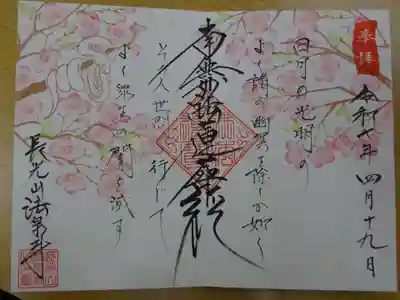 奉拝
令和七年 四月十九日
日月の光明の
よく諸の幽冥を除くが如く
南無妙法蓮華経
人世間に行じて
よく衆生の闇を滅す
長光山法